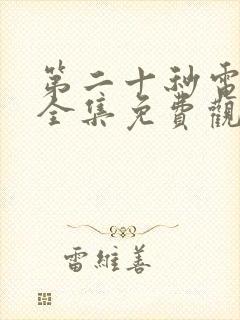 第二十秒電
全集免費觀
雷維善